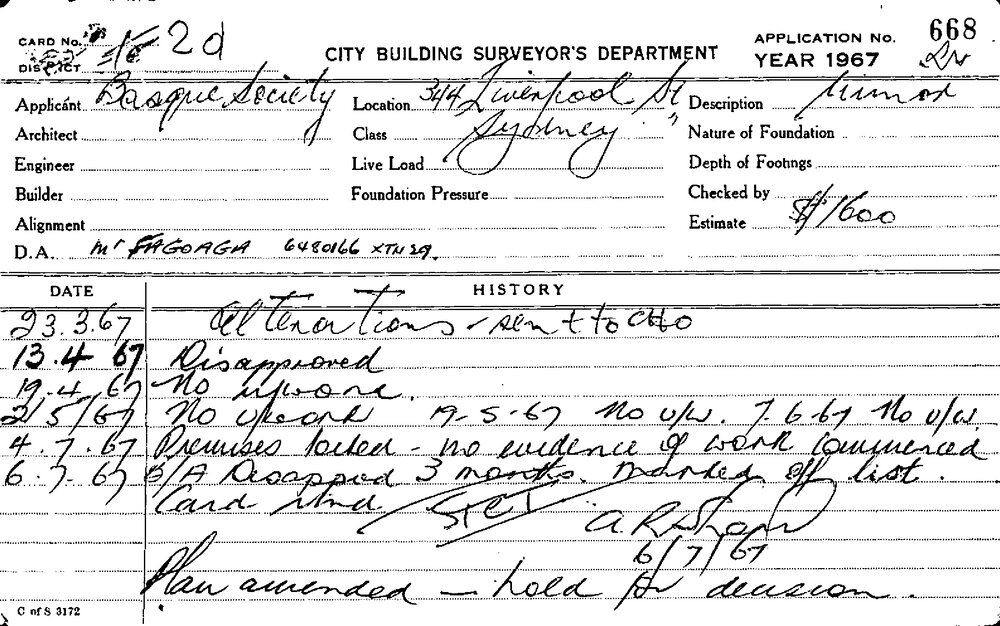 CARD No. 2d
DISTRICT
CITY BUILDING SURVEYOR'S DEPARTMENT
APPLICATION No. 668
YEAR 1967
Applicant Basque Society
Location 344 Liverpool St,
Description Minor
Architect
Class Sydney
Nature of Foundation
Engineer
Live Load
Depth of Footings
Builder
Foundation Pressure
Checked by
Alignment
Estimate $1600
D.A. Mr FAGOAGA 6480166 XTN 29.
DATE HISTORY
23.3.67 Alterations - sent to CHO
13.4 67 Disapproved
19.4.67 No work.
2/5/67 No work 19-5-67 No u/w. 7.6.67 No u/w.
4.7.67 Premises locked - no evidence of work commenced
6.7.67 B/A Disappd 3 months. Marked off list.
Card
6/7/67
Plan amended - hold for decision.
C of S 3172